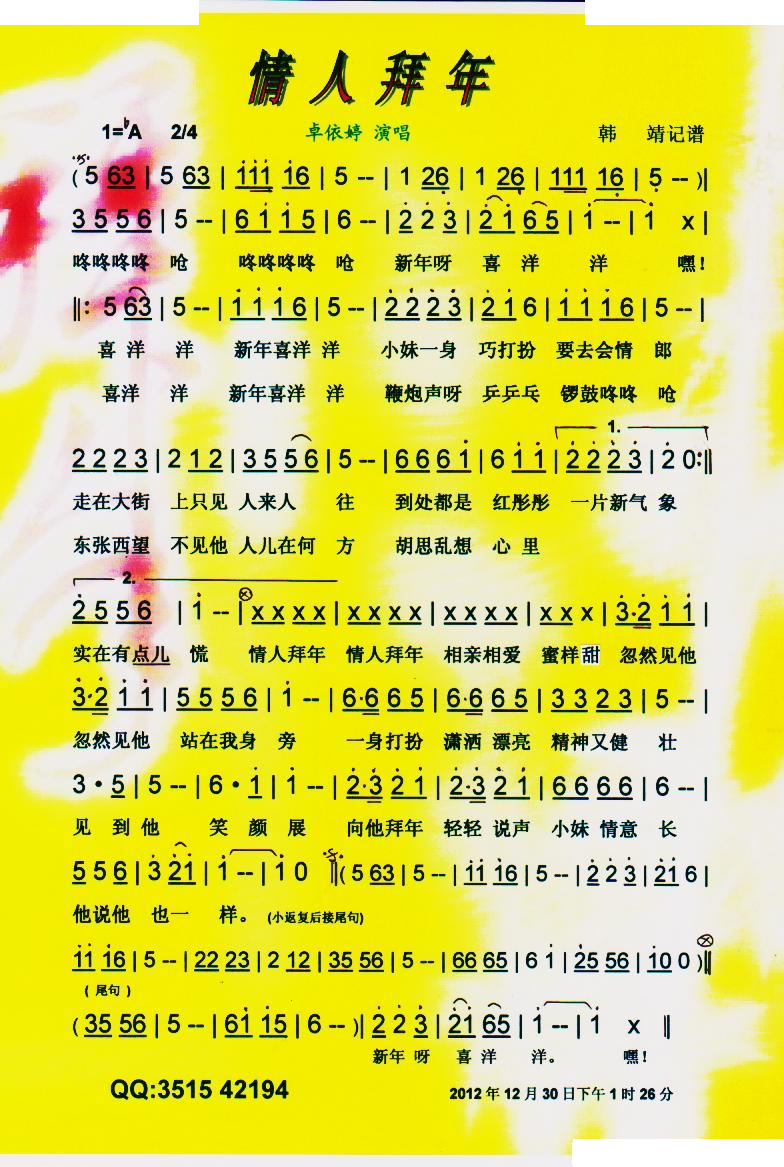 情人拜年
1=♭A 2/4 卓依婷 演唱 韩 靖记谱
( 5 63 | 5 63 | 111 16 | 5 -- | 1 26 | 1 26 | 111 16 | 5 -- )||
3 5 5 6 | 5 -- | 6 1 1 5 | 6 -- | 2 2 3 | 2 1 6 5 | 1 -- | 1 x |
咚咚咚咚 呛 咚咚咚咚 呛 新年呀 喜 洋 洋 嘿!
||: 5 63 | 5 -- | 1 1 1 6 | 5 -- | 2 2 2 3 | 2 1 6 | 1 1 1 6 | 5 -- |
喜 洋 洋 新年喜洋 洋 小妹一身 巧打扮 要去会情 郎
喜洋 洋 新年喜洋 洋 鞭炮声呀 乒乒乓 锣鼓咚咚 呛
1.
2 2 2 3 | 2 1 2 | 3 5 5 6 | 5 -- | 6 6 6 1 | 6 1 1 | 2 2 2 3 | 2 0 :||
走在大街 上只见 人来人 往 到处都是 红彤彤 一片新气 象
东张西望 不见他 人儿在何 方 胡思乱想 心 里
2.
2 5 5 6 | 1 -- | x x x x | x x x x | x x x x | x x x | 3·2 1 1 |
实在有点儿 慌 情人拜年 情人拜年 相亲相爱 蜜样甜 忽然见他
3·2 1 1 | 5 5 5 6 | 1 -- | 6·6 6 5 | 6·6 6 5 | 3 3 2 3 | 5 -- |
忽然见他 站在我身 旁 一身打扮 潇洒 漂亮 精神又健 壮
3 · 5 | 5 -- | 6 · 1 | 1 -- | 2·3 2 1 | 2·3 2 1 | 6 6 6 6 | 6 -- |
见 到他 笑 颜 展 向他拜年 轻轻 说声 小妹 情意 长
5 5 6 | 3 21 | 1 -- | 1 0 ||( 5 63 | 5 -- | 11 16 | 5 -- | 2 2 3 | 21 6 |
他说他 也一 样。 (小返复后接尾句)
11 16 | 5 -- | 22 23 | 2 12 | 35 56 | 5 -- | 66 65 | 6 1 | 25 56 | 10 0 )||
( 尾句 )
( 35 56 | 5 -- | 61 15 | 6 -- )| 2 2 3 | 21 65 | 1 -- | 1 x ||
新年 呀 喜 洋 洋。 嘿!
QQ:3515 42194 2012 年 12 月 30 日下午 1 时 26 分